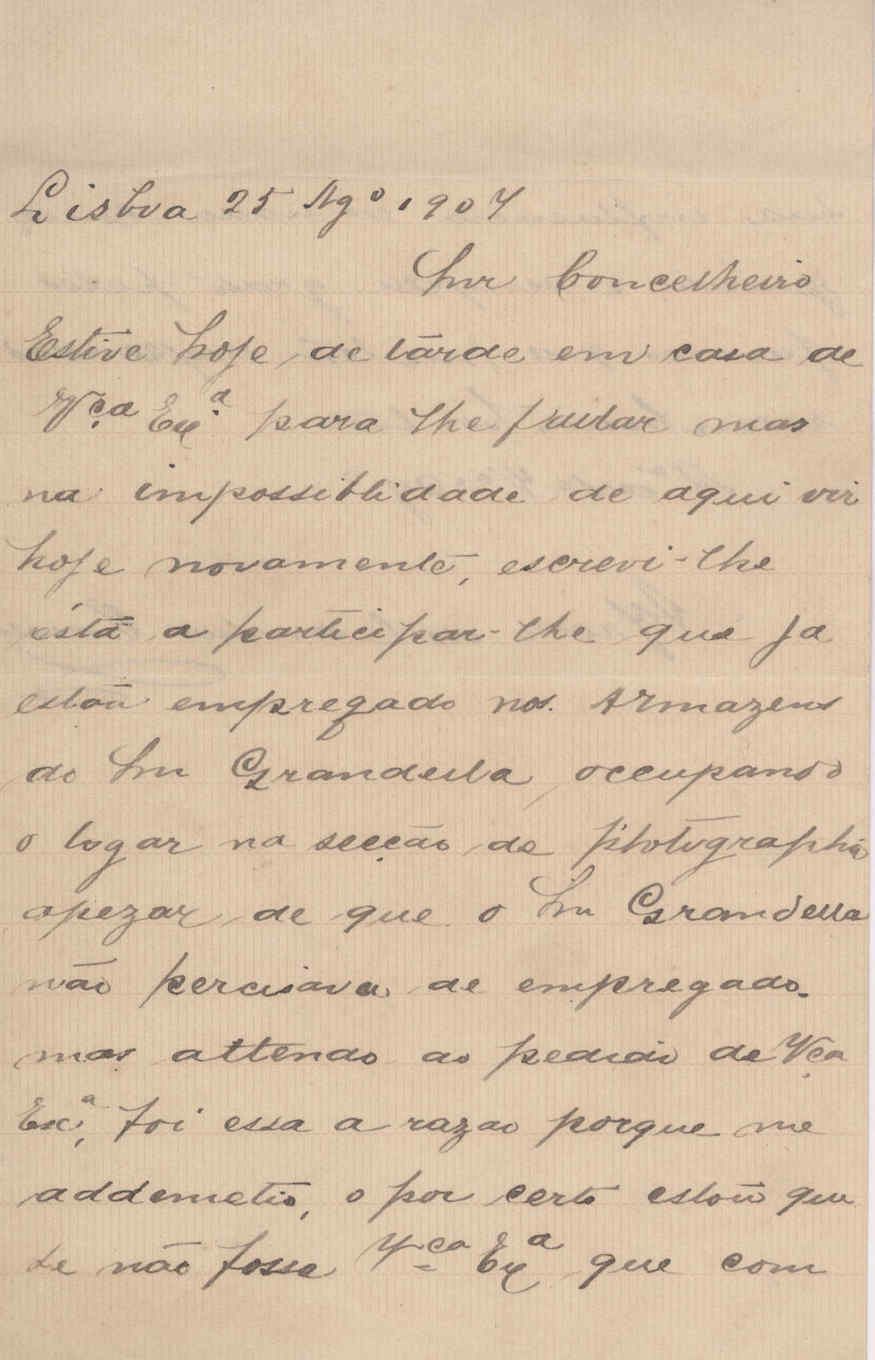 Lisbva 25 Agº 1907
Snr Concelheiro
Estive hoje de tarde em casa de
Vçª Exª para lhe fallar mas
na impossiblidade de aqui vir
hoje novamente, escrevi-lhe
esta a participar-lhe que ja
estou empregado nos Armazens
do Snr Grandella, occupando
o logar na secção de photographia
apezar de que o Snr Grandella
não percisava de empregado.
mas attendo ao pedido de Vçª
Exª, foi essa a razao porque me
addemetio, o por certo estou que
se não fosse Vçª Exª que com